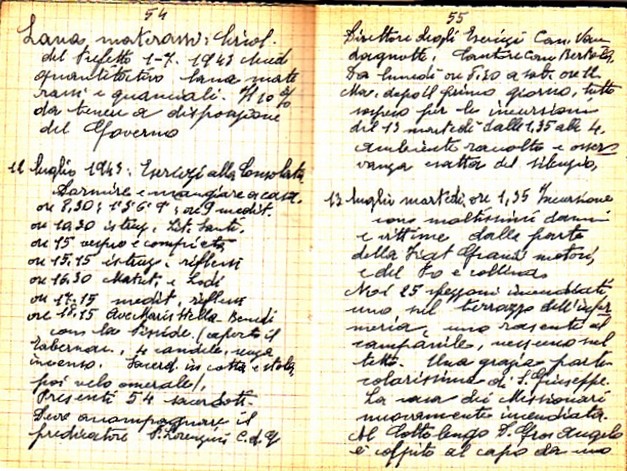 54
Lana materassi: Circol.
del Prefetto 1-7. 1943 Chied
quantitativo lana mate
rassi e guanciali. Il 10 %
da tenere a disposizione
del Governo
12 luglio 1943: Esercizi alla Consolata
Dormire e mangiare a casa.
ore 8,30: 1ª 3ª 6ª 9ª; ore 9 medit.
ore 10.30 istruz. Lit. Santi.
ore 15 vespro e compieta
ore 15.15 istruz. rifless
ore 16.30 Matut. e Lodi
ore 17.15 medit, rifless
ore 18.15 Ave Maris Stella. Benedi
con la Pisside. (aperto il
tabernac., 4 candele, senza
incenso. Sacerd. in cotta e stola,
poi velo omerale).
Presenti 54 sacerdoti.
Deve accompagnare il
predicatore P. Lorenzini C. d. G
55
Direttore degli Esercizi Can. Vau
dagnotti, Cantore Can. Bertola
Da lunedì ore 8,30 a sab. ore 11.
Ma, dopo il primo giorno, tutto
sospeso per la incursioni
del 13 martedì dalle 1,35 alle 4.
Ambiente raccolto e osser
vanza esatta del silenzio,
13 luglio martedì, ore 1,35 Incursione
con moltissimi danni
e vittime dalla parte
della Fiat Grandi motori,
e del Po e collina.
Noi 25 spezzoni incendiati
uno sul terrazzo dell'infer
meria, uno rasente al
campanile, nessuno sul
tetto. Una grazia parti
colarissima di S. Giuseppe.
La casa dei Missionari
nuovamente incendiata.
Al Cottolengo D. Gros Angelo
è colpito al capo da uno